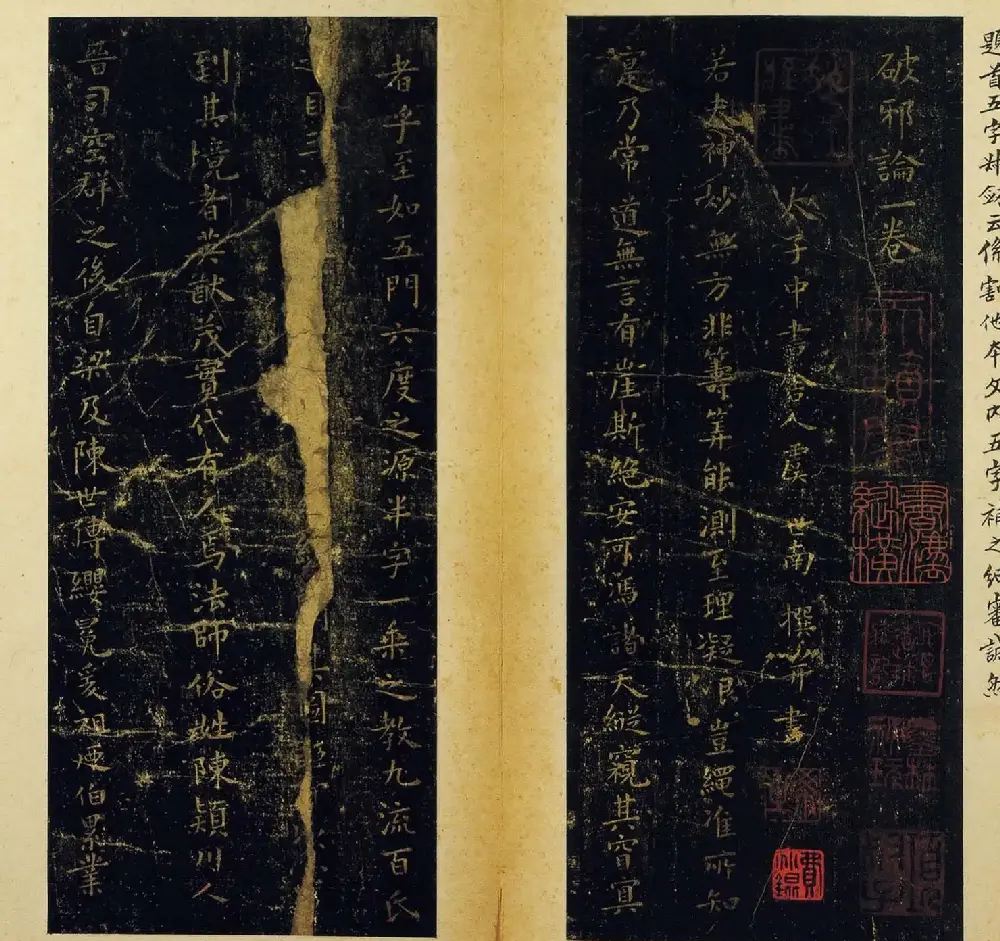 題首五字井僉云係割他本文内五字補之細審誠然
破邪論一卷
太子中書舍人虞世南撰并書
若夫神妙無方非籌筭能測至理凝邈豈繩准所知
寔乃常道無言有崖斯絶安可憑諸天縱窺其窅冥
者乎至如五門六度之源半字一乘之教九流百氏
之目三
到其境者英猷茂實代有人焉法師俗姓陳潁川人
晉司空群之後自梁及陳世傳纓冕爰祖逮伯累業
費